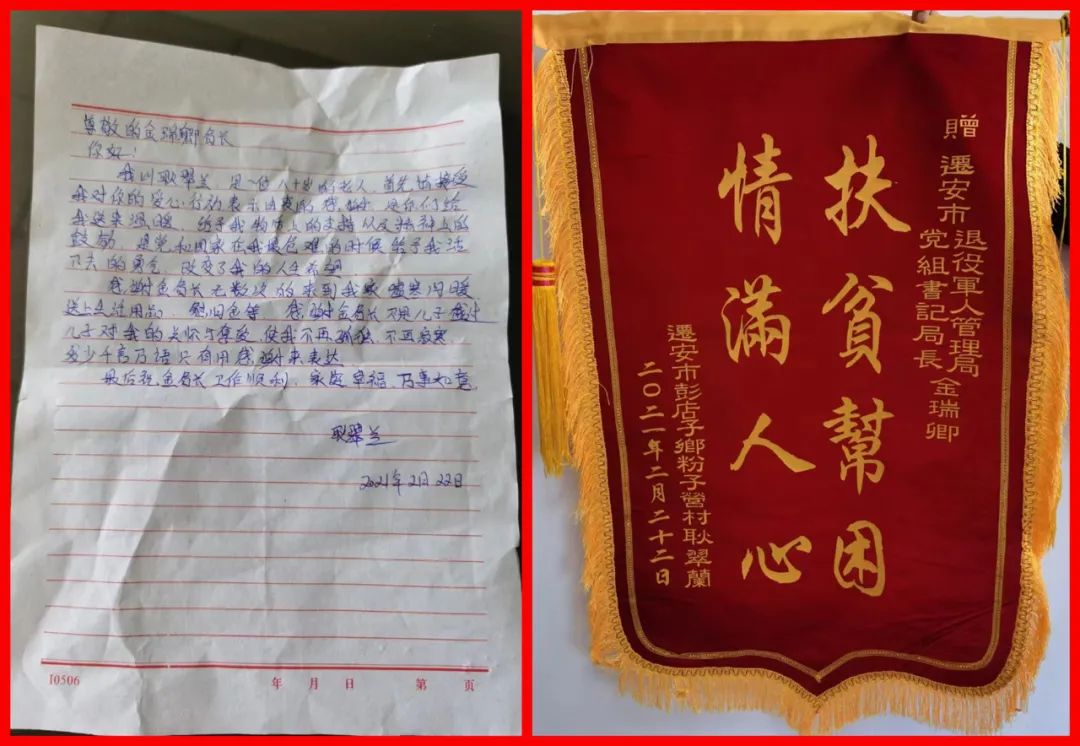 尊敬的金瑞卿局长
你好!
我叫耿翠兰,是一位八十岁的老人,首先
我对你的爱心行动表示由衷的感谢,是你们给
我送来温暖,给予我物质上的支持以及精神上的
鼓励,是党和国家在我最危难的时候给予我活
下去的勇气,改变了我的人生希望
感谢金局长无数次的来到我家嘘寒问暖
送上生活用品,慰问包等,感谢金局长不是儿子胜过
儿子对我的关怀与尊爱,使我不再孤独,不再寂寞
多少千言万语只有用感谢来表达
最后祝金局长工作顺利,家庭幸福,万事如意
耿翠兰
2021年2月22日
I0506 年 月 日 第 页
贈 遷安市退役軍人管理局
党組書記局長 金瑞卿
扶貧幫困
情滿人心
遷安市彭店子鄉粉子營村耿翠蘭
二〇二一年二月二十二日